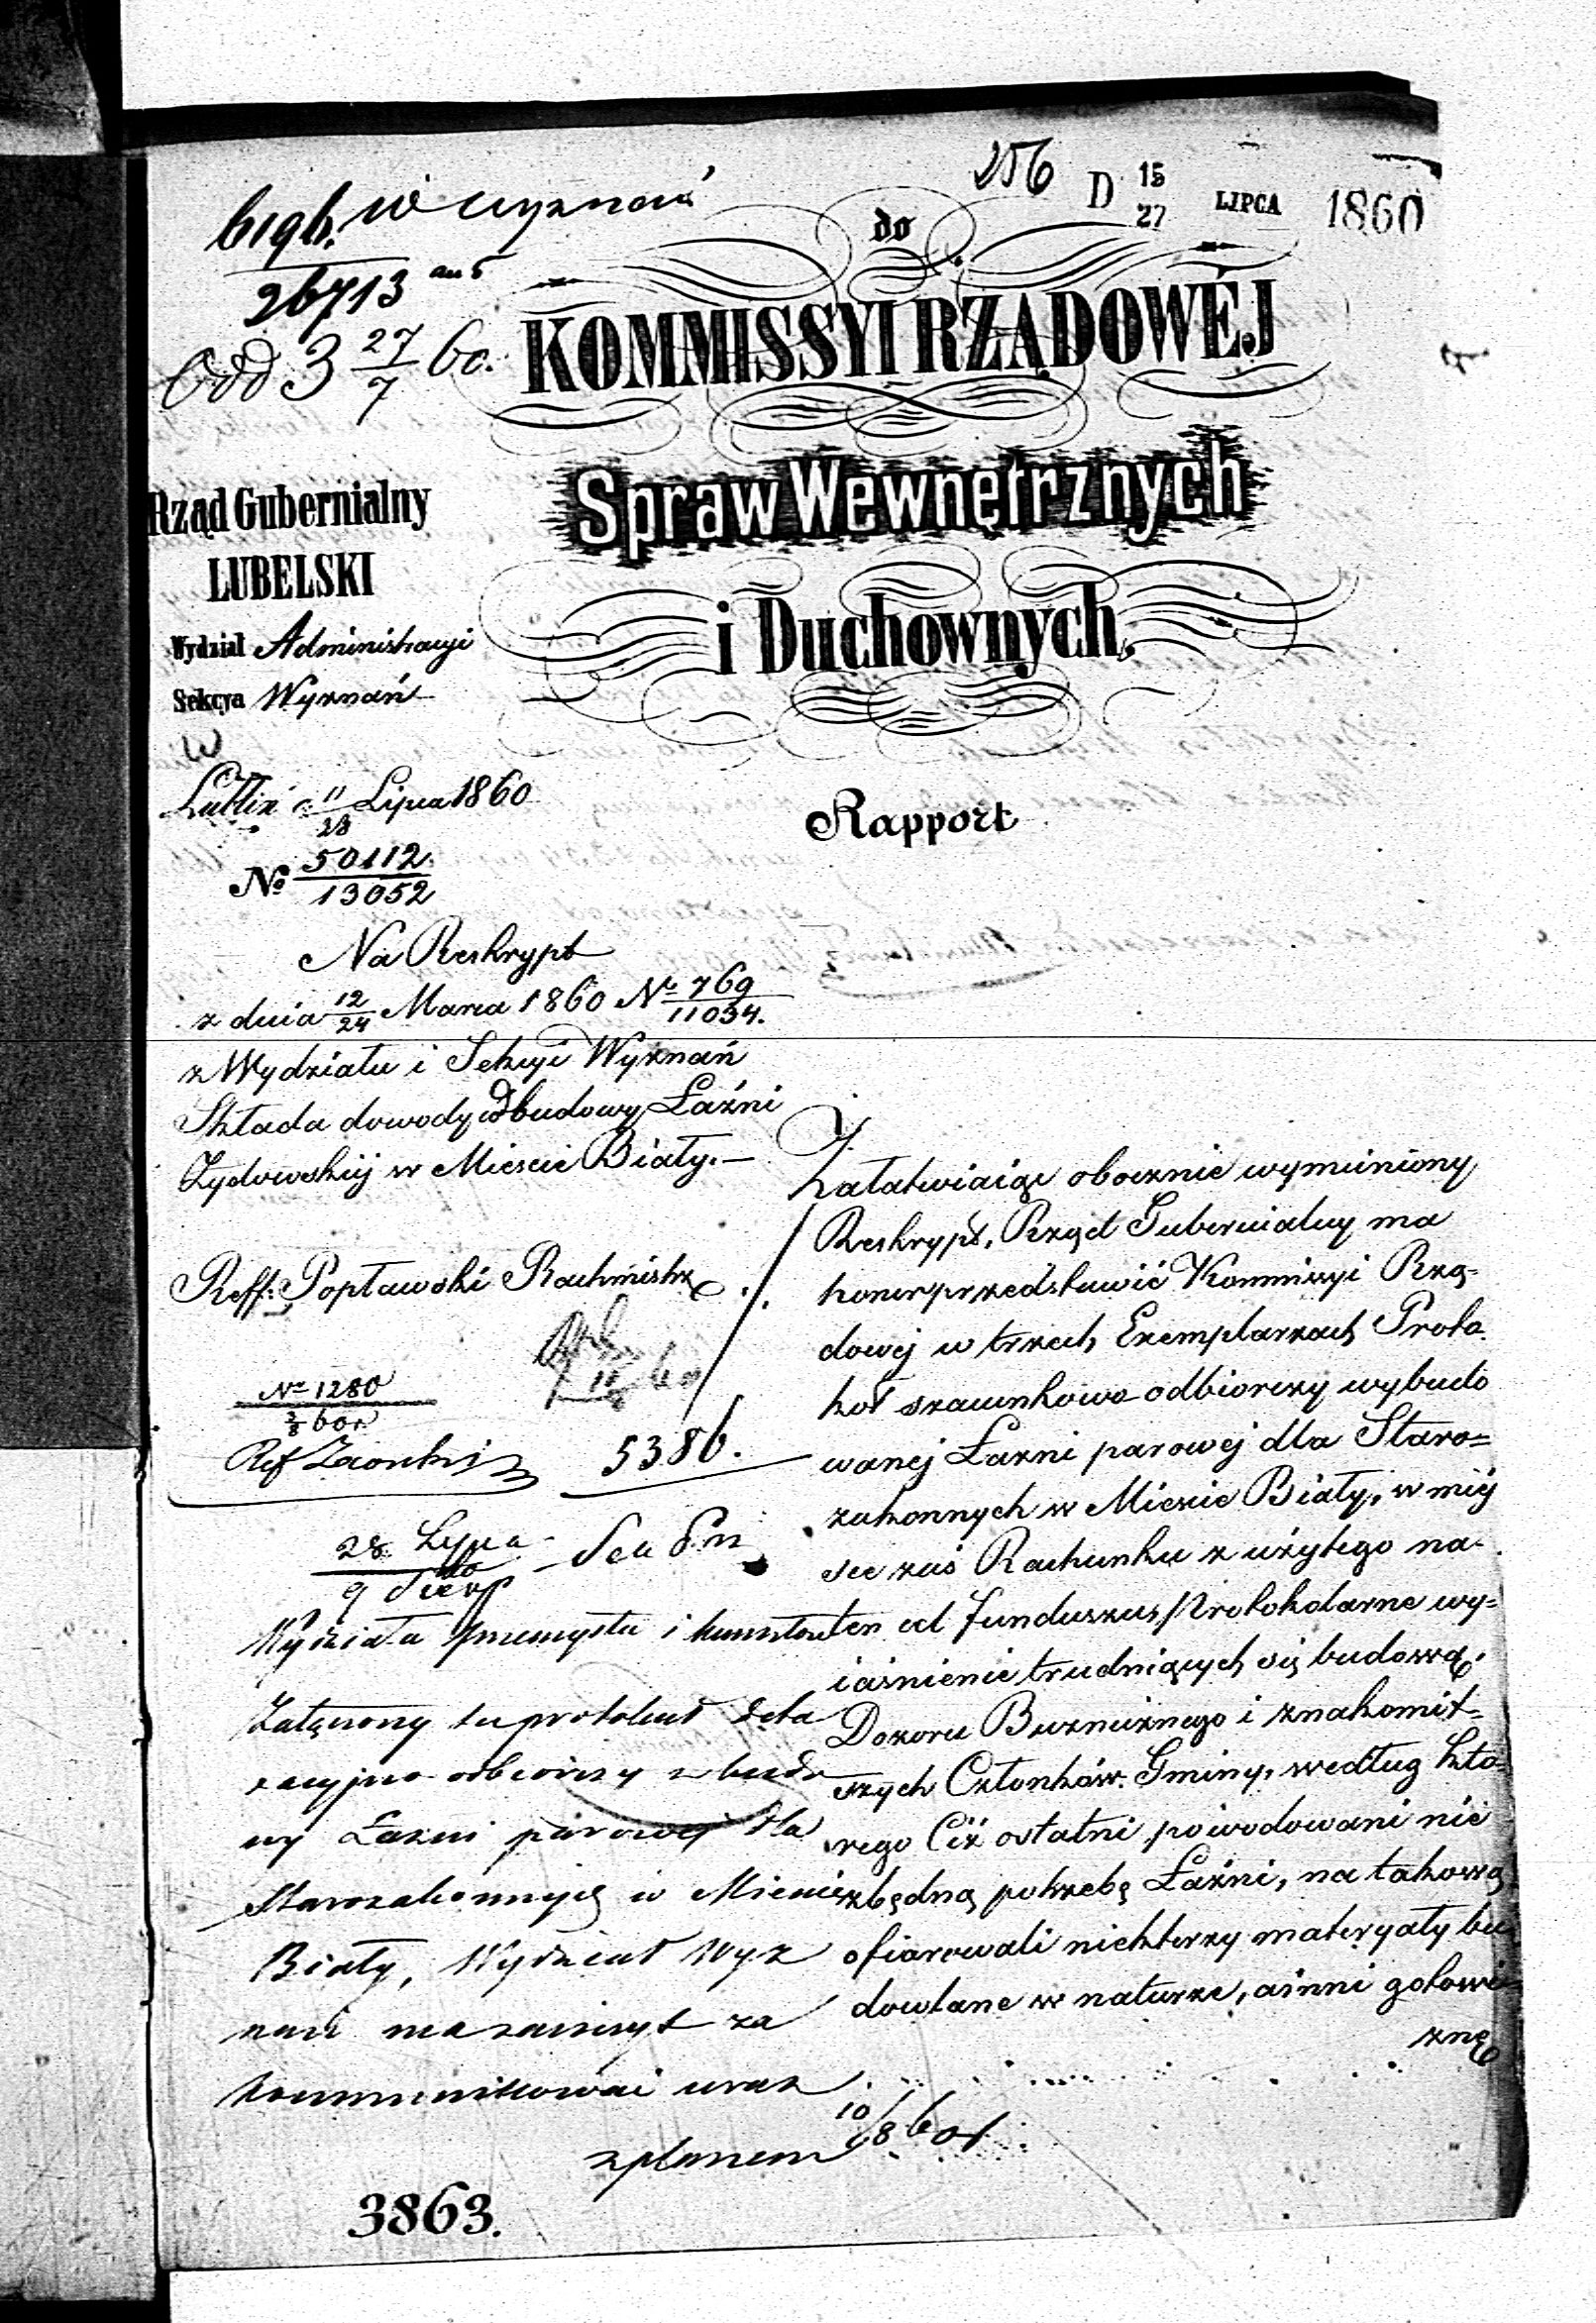 256
D 15/27 LIPCA 1860
6196. W wyznań
26713
Odd 3 27/7 60.
do
KOMMISSYI RZĄDOWÉJ
Spraw Wewnętrznych
i Duchownych,
Rząd Gubernialny
LUBELSKI
Wydział Administracyi
Sekcya Wyznań
Lublin d. 11/23 Lipca 1860
№ 50112/13052
Rapport
Na Reskrypt
z dnia 12/24 Marca 1860 № 769/11034.
z Wydziału i Sekcyi Wyznań
Składa dowody odbudowy Łaźni
Żydowskiéj w Mieście Biały.—
Reff: Popławski Rachmistrz
№ 1280
2/8 60 r
Ref
5386.
28 Lipca
9 Sierp
Wydziału przemysłu i kunsztów
Załączony tu protokuł
acyjno odbiorczy z budo
wy Łazni parowej dla
Starozakonnych w Mieście
Biały, Wydział Wyz
nań ma zaszczyt za
kommunikować wraz
z planem 10/8 60 r
3863.
Załatwiaiąc obocznie wymieniony
Reskrypt, Rząd Gubernialny ma
honor przedstawić Kommissyi Rzą-
dowej w trzech Exemplarzach Proto
kół szacunkowo-odbiorczy wybudo
wanej Łazni parowej dla Staro=
zakonnych w Mieście Biały, w miéy
sce zaś Rachunku z użytego na
ten cel funduszu, Protokolarne wy=
iaśnienie trudniących się budową,
Dozoru Bużnicznego i znakomit=
szych Członków Gminy, według któ=
rego Ciż ostatni powodowani nie
zbędną potrzebą Łaźni, na takową
ofiarowali niektorzy materyały bu
dowlane w naturze, a inni gotowi
znę